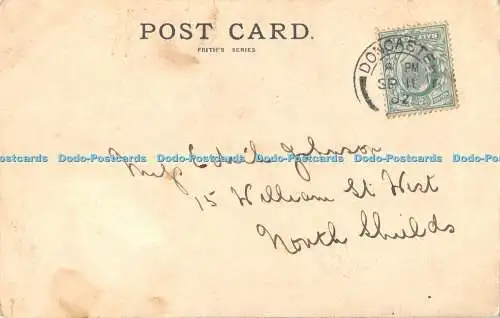 POST CARD.
FRITH'S SERIES
DONCASTE
PM
SP 11
02
Dodo-Postcards Dodo-Postcards Dodo-Postcards Dodo-Postcards Dodo-Postcards Dodo-Postcards
Johnson
15 William St West
North Shields